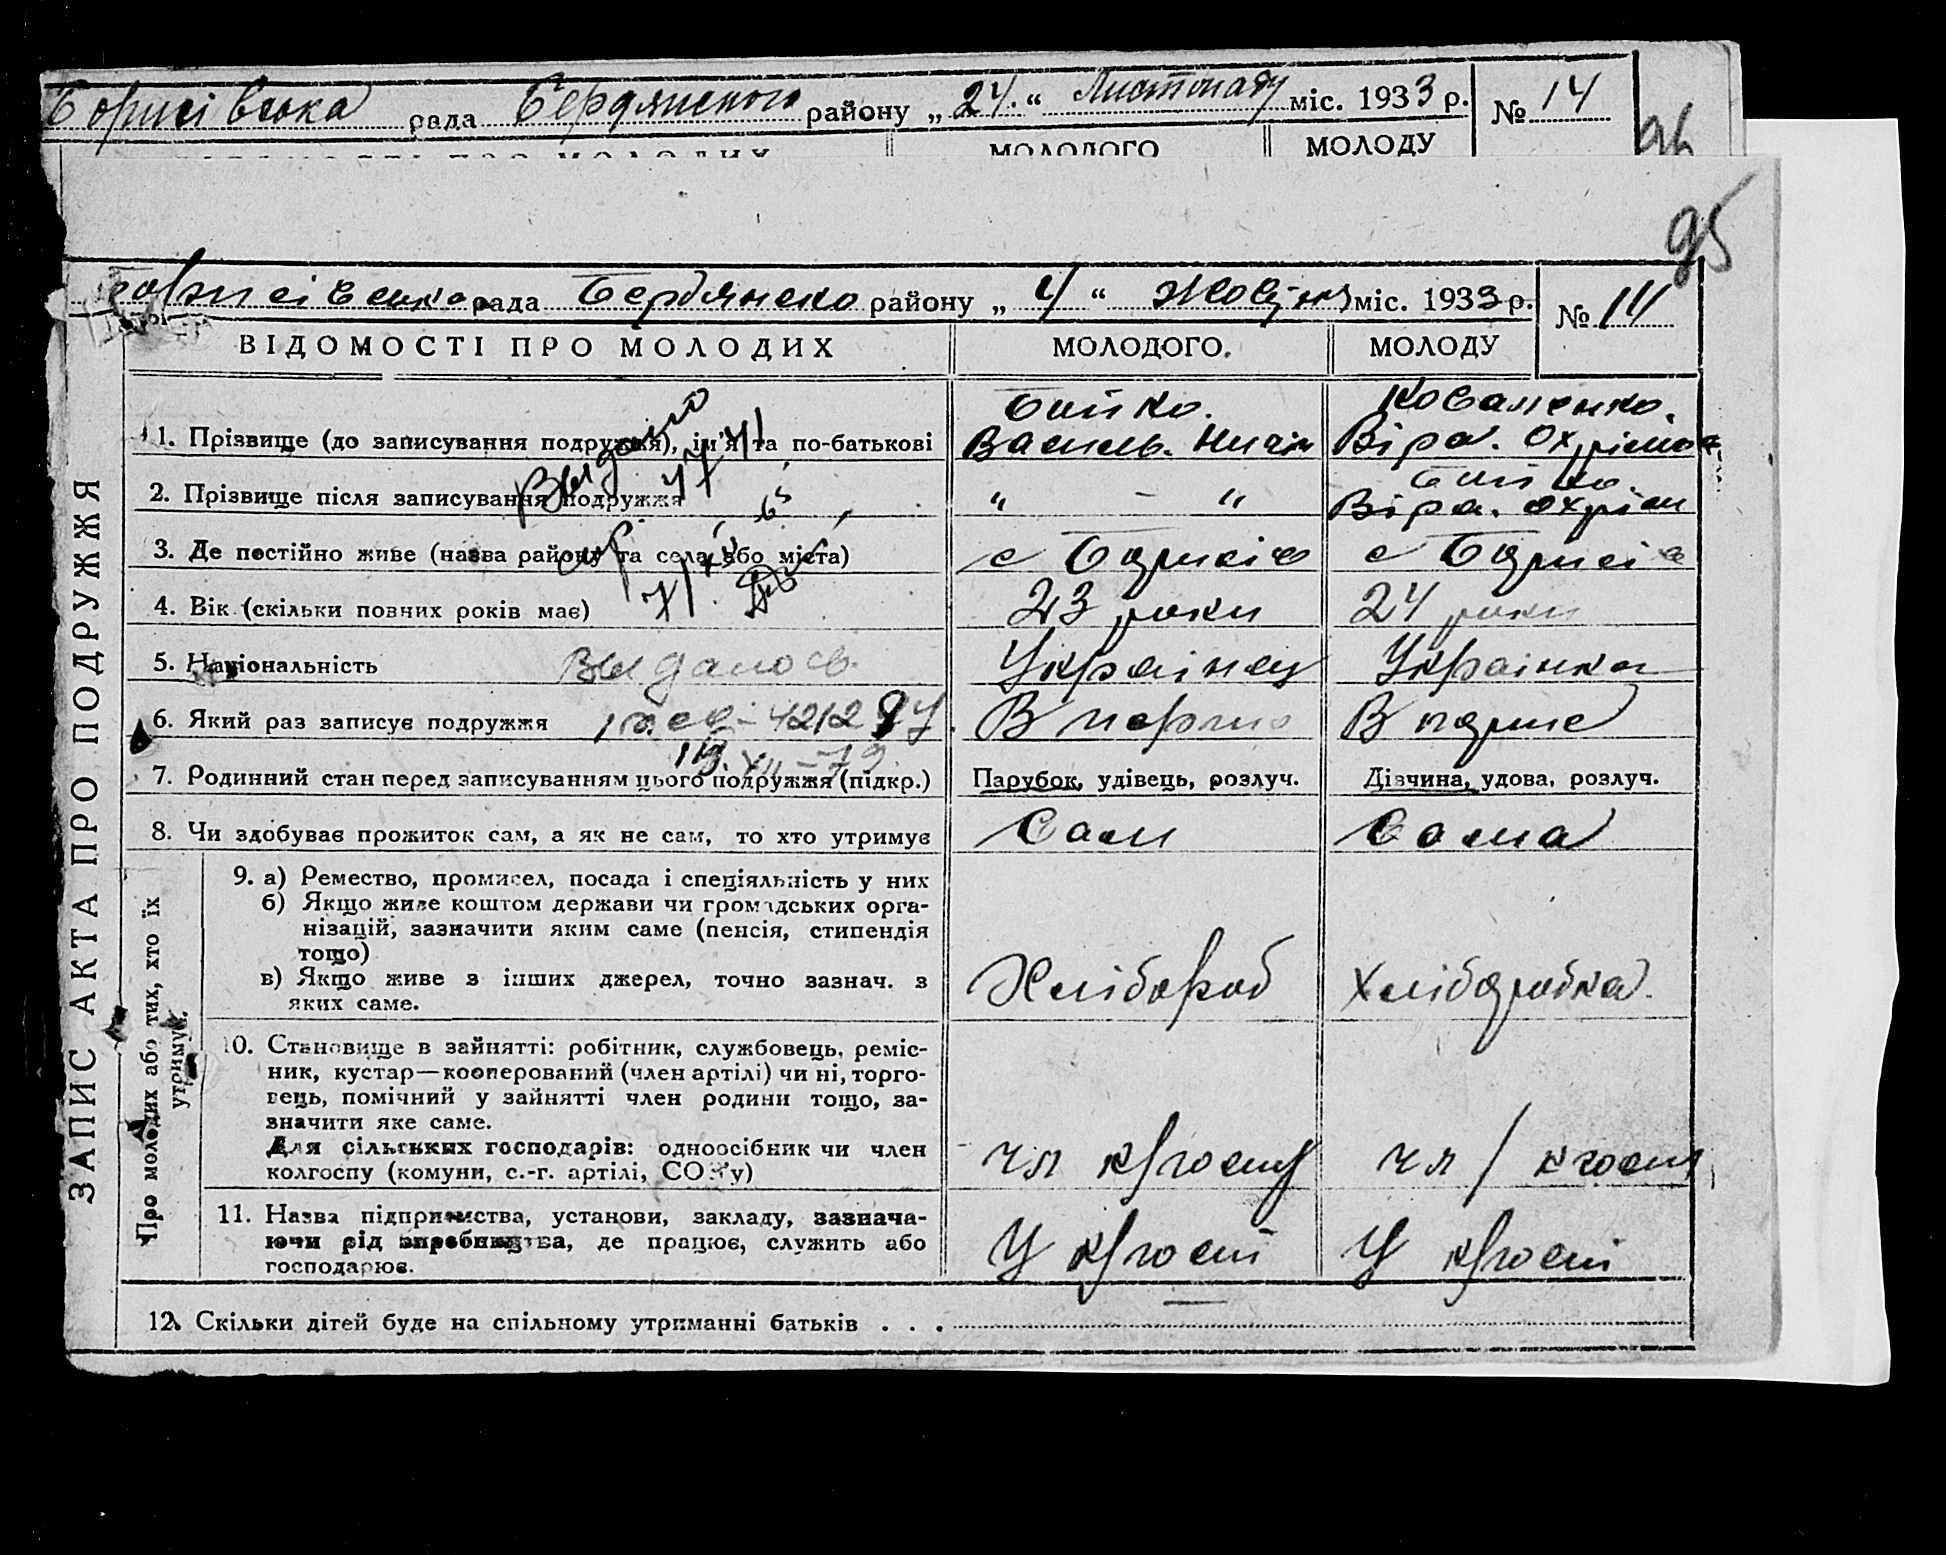 Борисівська рада Бердянського району „24“ Листопаду міс. 1933 р. № 14
МОЛОДОГО МОЛОДУ
96
95
Борисівська рада Бердянсько району „4“ Жовтня міс. 1933 р. № 14
ЗАПИС АКТА ПРО ПОДРУЖЖЯ
ВІДОМОСТІ ПРО МОЛОДИХ МОЛОДОГО. МОЛОДУ
Бойко. Коваленко.
1. Прізвище (до записування подружжя), ім'я та по-батькові Василь. Ничип Віра. Охрімов
Бойко.
2. Прізвище після записування подружжя „ – “ Віра. Охрім
Выдано
3. Де постійно живе (назва району та села або міста) с Борисів с Борисів
4. Вік (скільки повних років має) 23 роки 24 роки
5. Національність Українец Українка
Выдалось
6. Який раз записує подружжя В перше В перше
7. Родинний стан перед записуванням цього подружжя (підкр.) Парубок, удівець, розлуч. Дівчина, удова, розлуч.
8. Чи здобуває прожиток сам, а як не сам, то хто утримує Сам Сама
Про молодих або тих, хто їх утримує.
9. а) Ремество, промисел, посада і спеціяльність у них
б) Якщо живе коштом держави чи громадських орга-
нізацій, зазначити яким саме (пенсія, стипендія
тощо)
в) Якщо живе з інших джерел, точно зазнач. з
яких саме.
Хлібороб хліборобка.
10. Становище в зайнятті: робітник, службовець, реміс-
ник, кустар—кооперований (член артілі) чи ні, торго-
вець, помічний у зайнятті член родини тощо, за-
значити яке саме.
Для сільських господарів: одноосібник чи член
колгоспу (комуни, с.-г. артілі, СОЗ'у)
чл к/госпу чл / кгоспу
11. Назва підприємства, установи, закладу, зазнача-
ючи рід виробництва, де працює, служить або
господарює.
У к/госпі У к/госпі
12. Скільки дітей буде на спільному утриманні батьків . . . —